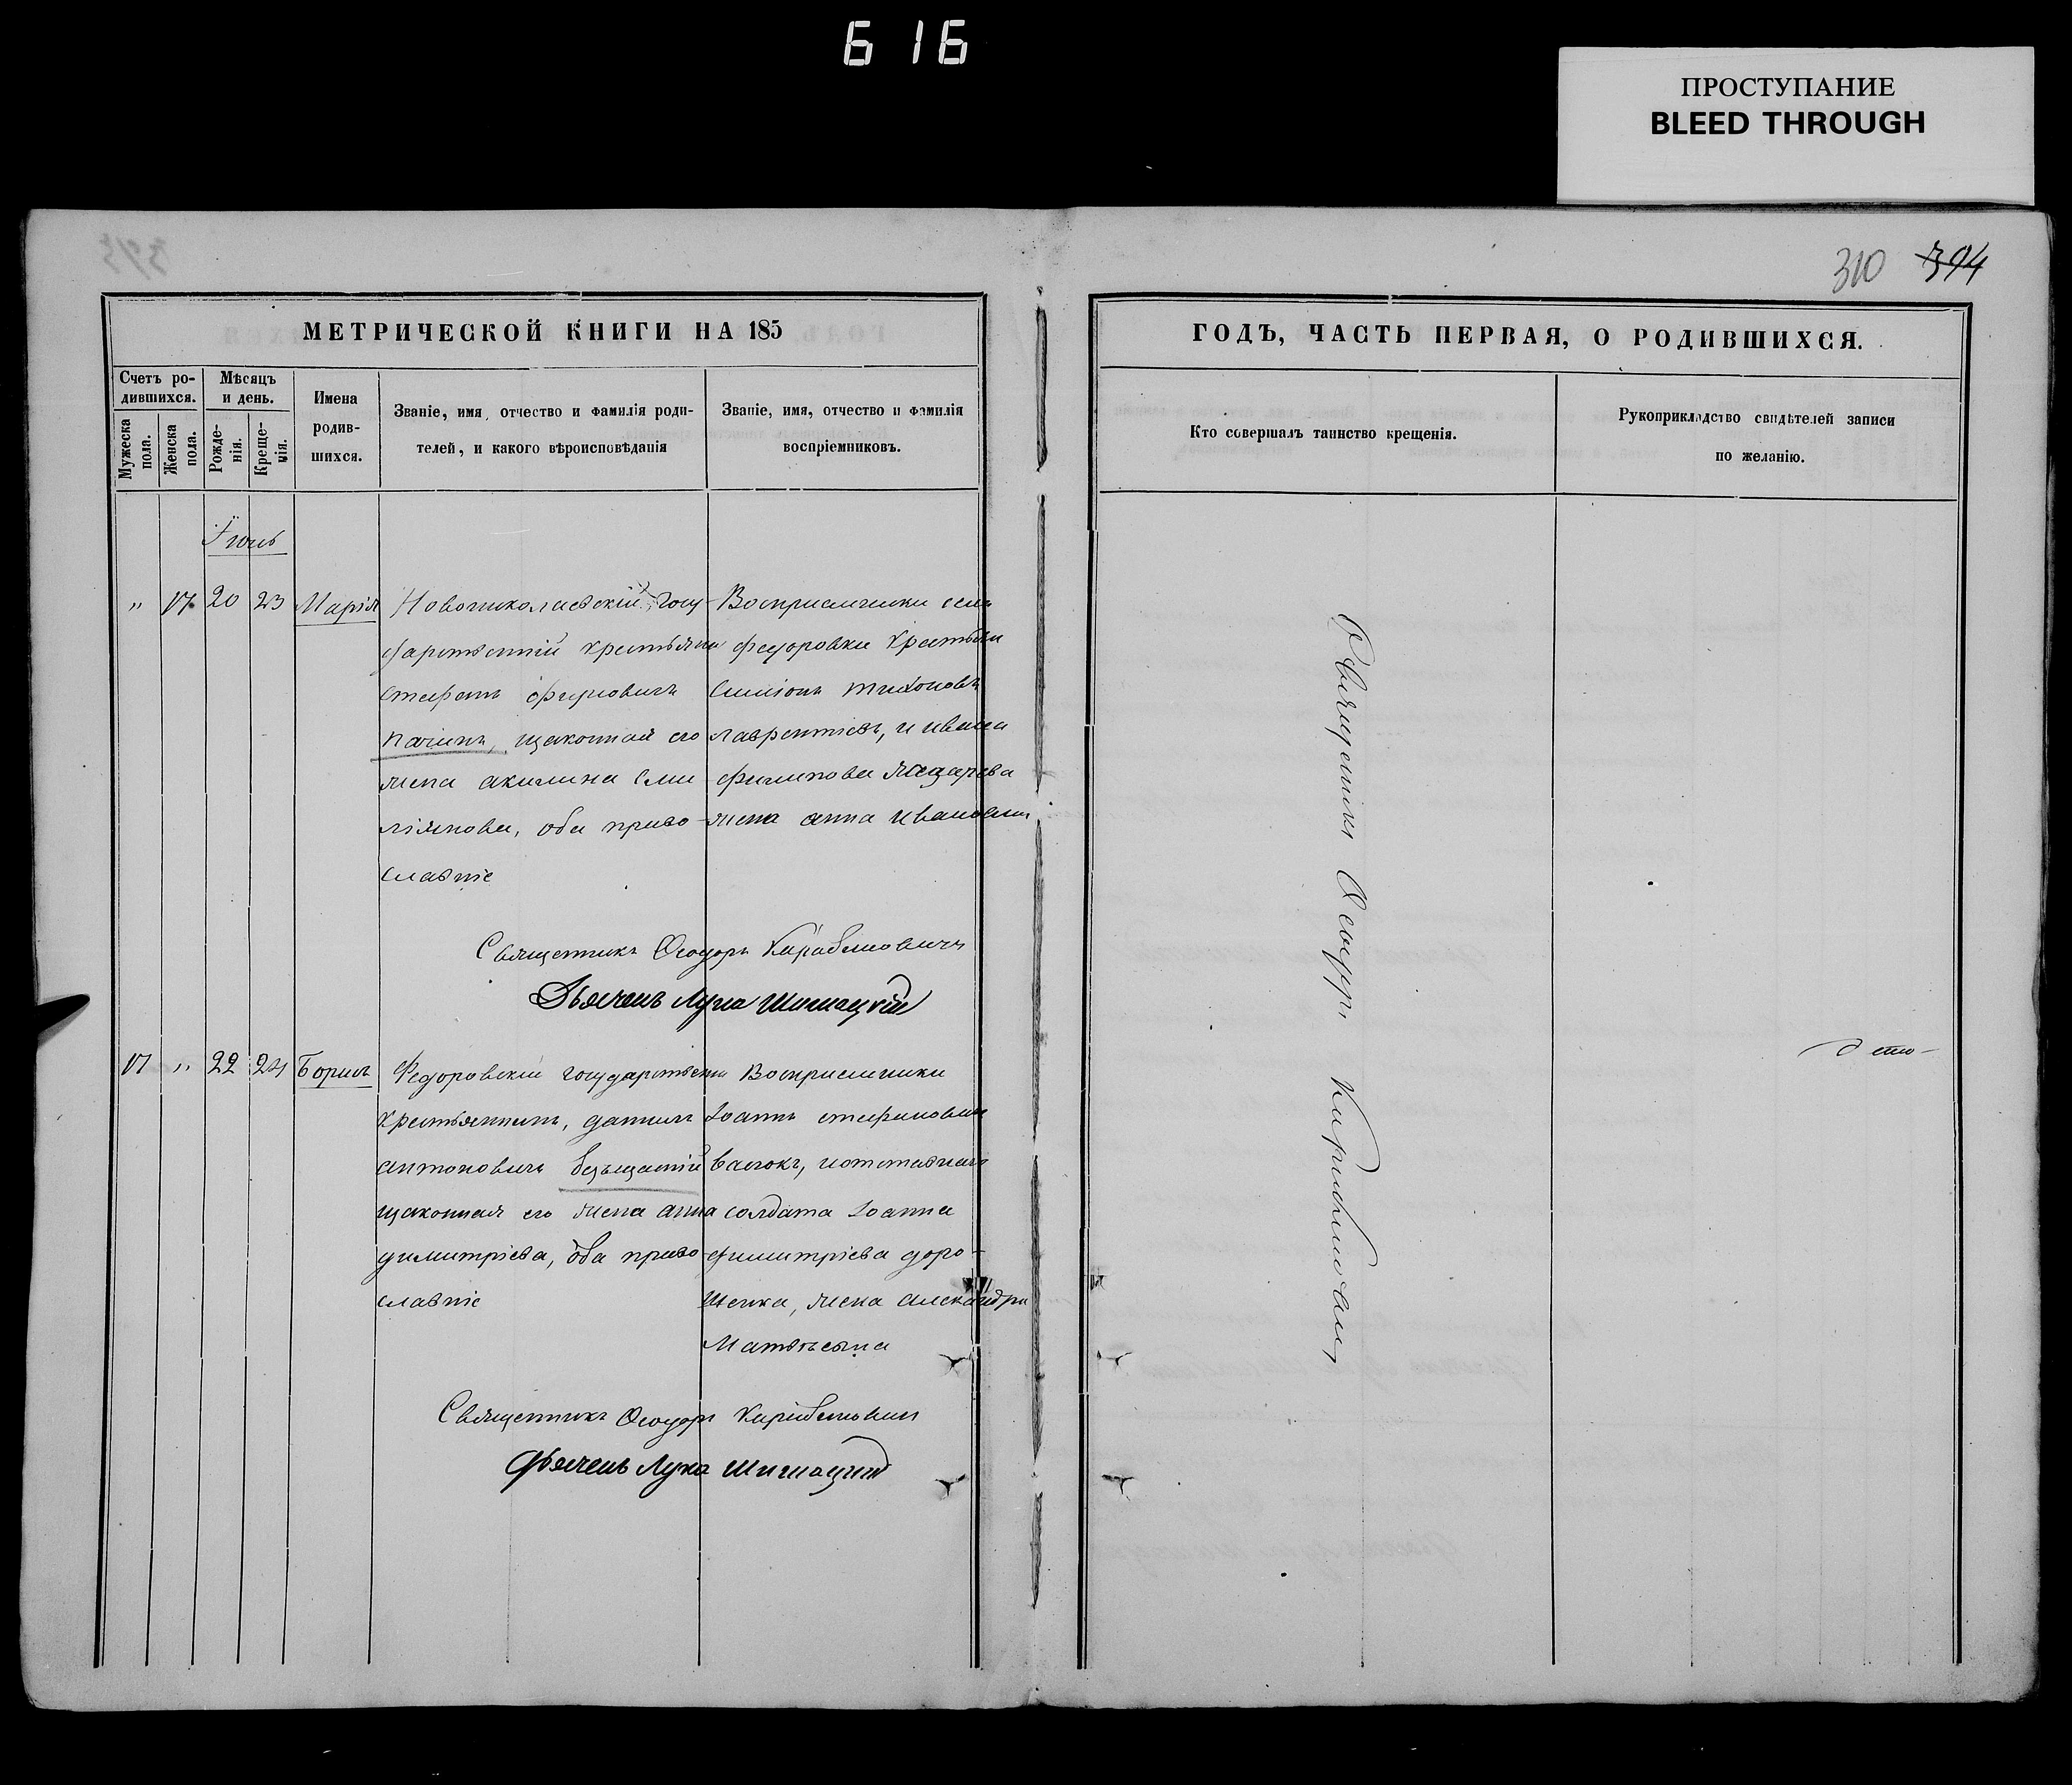 616
ПРОСТУПАНИЕ
BLEED THROUGH
310 394
МЕТРИЧЕСКОЙ КНИГИ НА 185
ГОДЪ, ЧАСТЬ ПЕРВАЯ, О РОДИВШИХСЯ.
Счетъ ро-
дившихся.
Мужеска
пола.
Женска
пола.
Мѣсяцъ
и день.
Рожде-
нія.
Креще-
нія.
Имена
родив-
шихся.
Званіе, имя, отчество и фамилія роди-
телей, и какого вѣроисповѣданія
Званіе, имя, отчество и фамилія
воспріемниковъ.
Кто совершалъ таинство крещенія.
Рукоприкладство свидѣтелей записи
по желанію.
" 20 23 Марія Новониколаевскій госу-
дарственній крестьянин
Стефанъ
законная его
жена акилина Еми-
ліянова, оба право-
славніе
Восприемники села
федоровки крестьян
Симіонъ тихоновъ
лаврентіевъ, и ивана
филипова
жена анна ивановна
Священникъ Ѳеодоръ
Дьячекъ Лука Шишацкій
" 22 24 Борисъ Федоровскій государствен
крестьянинъ, данилъ
антоновичъ
законная его жена анна
димитріева, оба право-
славніе
Восприемники
Іоаннъ стефановъ
солдата Іоанна
димитріева доро-
шенка, жена александра
Матвѣевна
Священникъ Ѳеодоръ
Дьячекъ Лука Шишацкій
Священникъ Ѳеодоръ